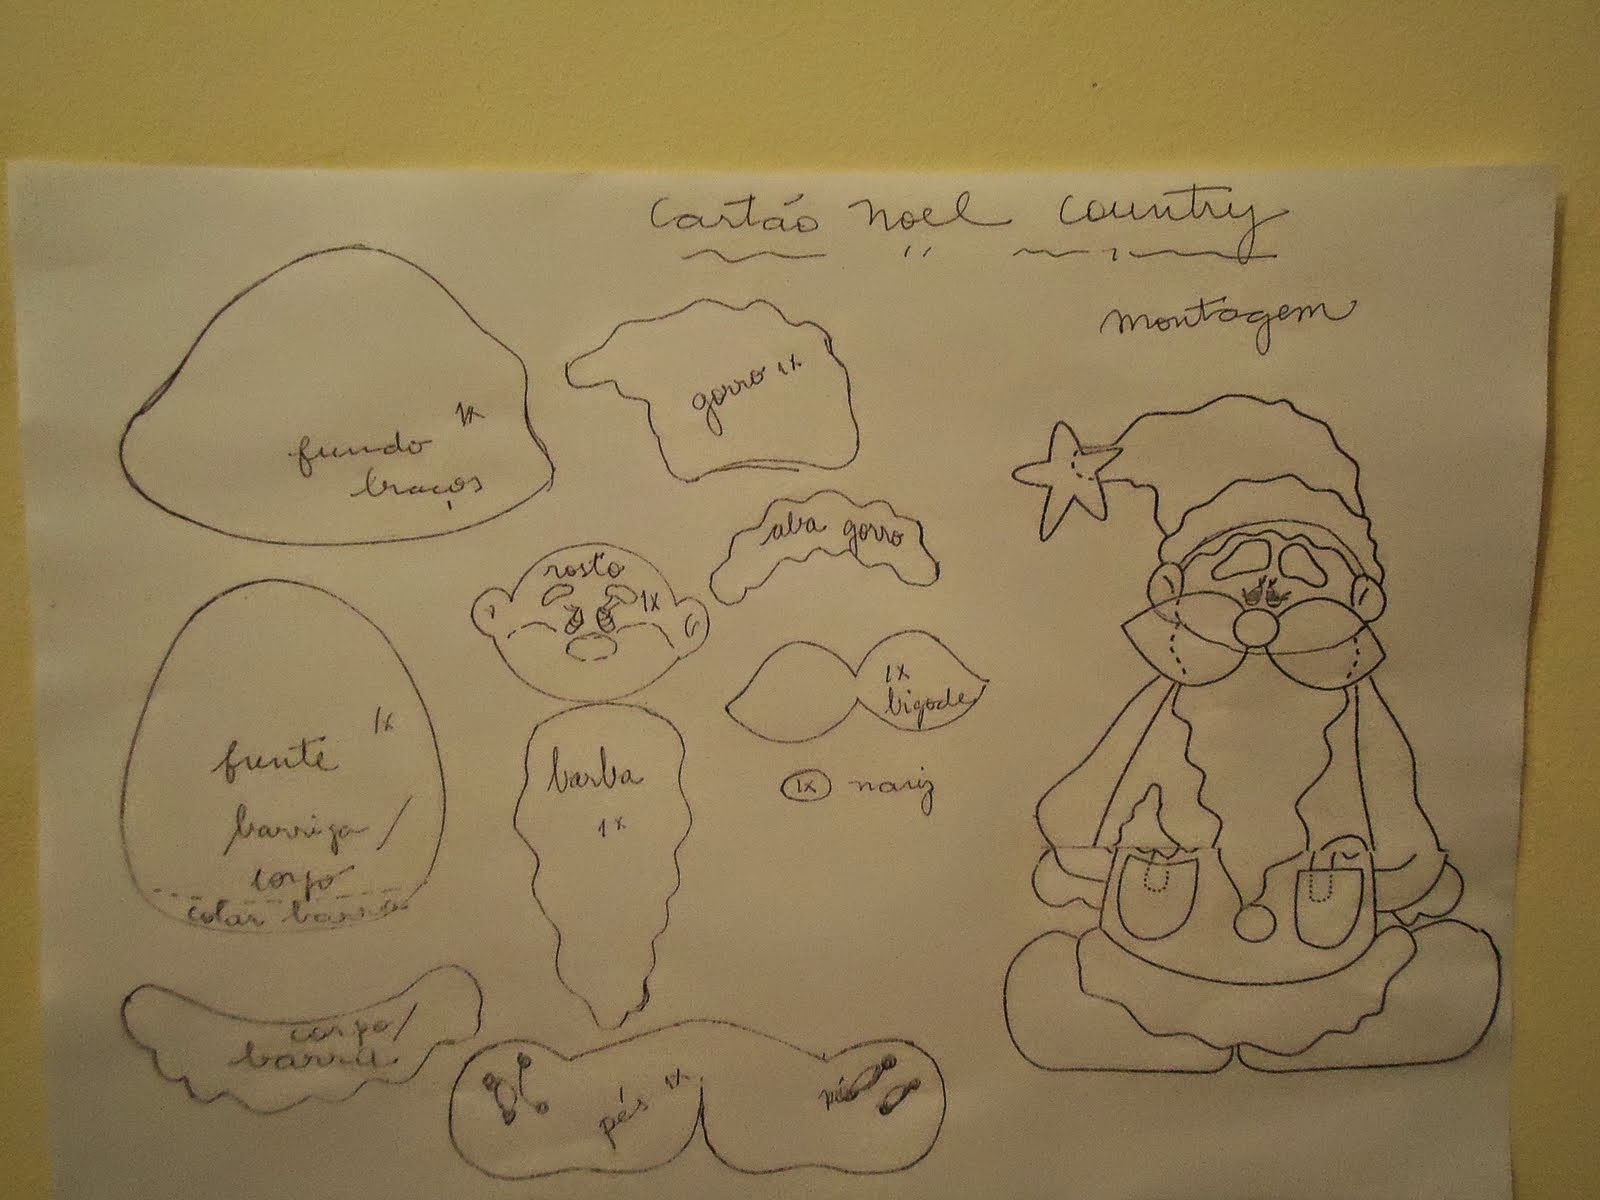 Cartão Noel Country
montagem
fundo 1x
braços
gorro 1x
aba gorro
rosto
1x
1x
bigode
frente 1x
barriga/
corpo
colar barra
barba
1x
1x nariz
corpo/
barra
pés 1x
pé